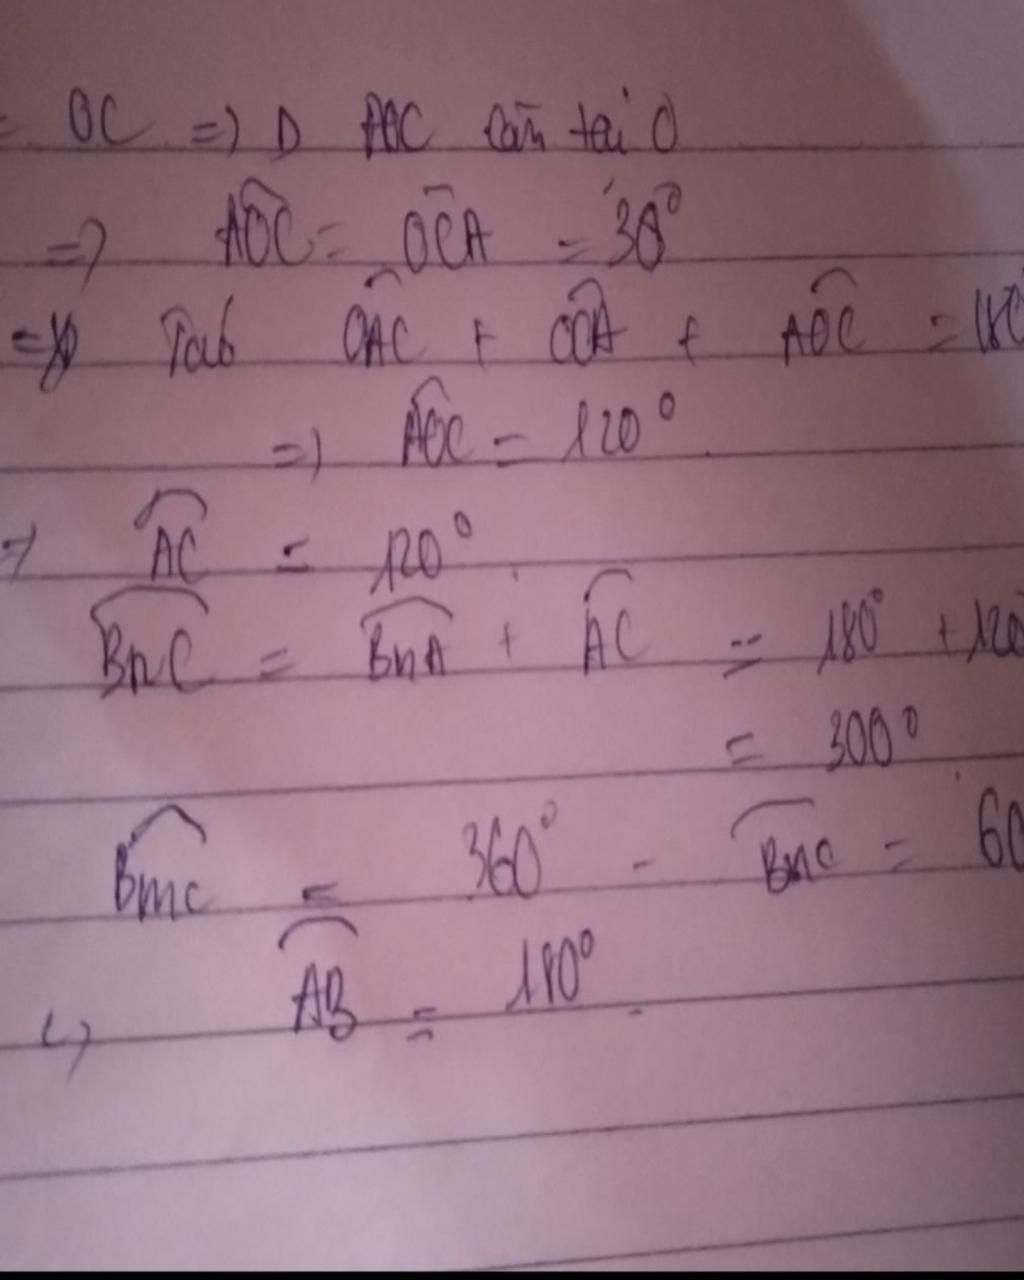 = OC => Δ AOC cân tại O
=> AOC = OCA = 30°
=> Ta có OAC + OCA + AOC = 180
=> AOC = 120°
=> AC = 120°
BnC = BnA + AC = 180° + 120°
= 300°
BmC = 360° - BnC = 60
c) AB = 180°